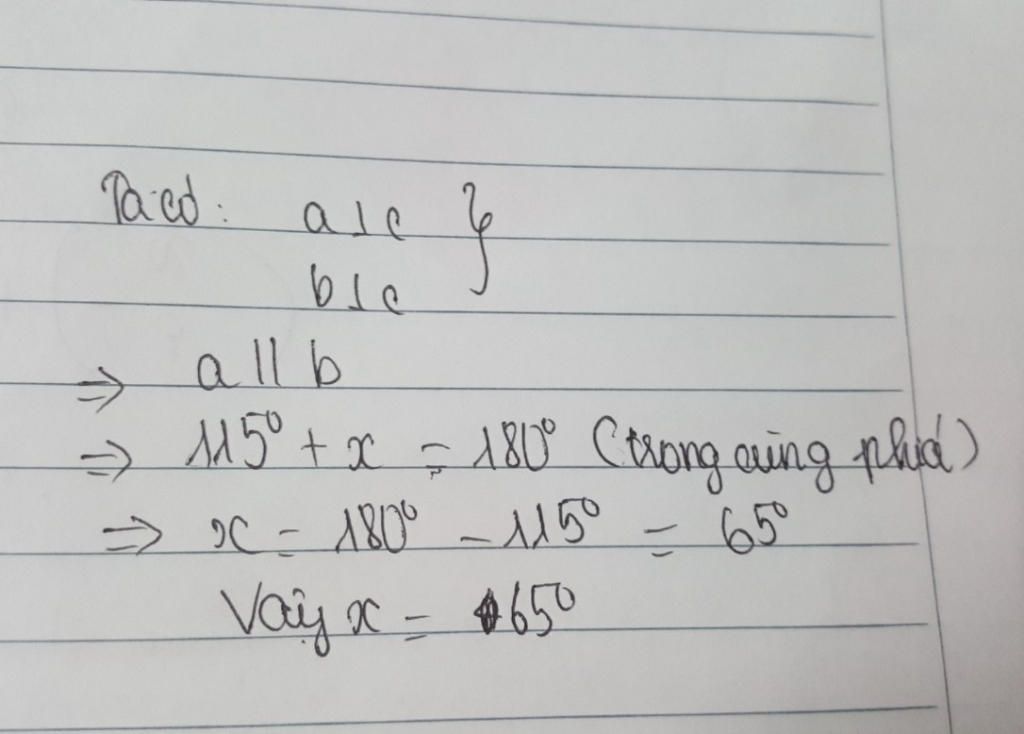 Ta có: a ⊥ c }
b ⊥ c
⇒ a // b
⇒ 115° + x = 180° (trong cùng phía)
⇒ x = 180° - 115° = 65°
Vậy x = 65°